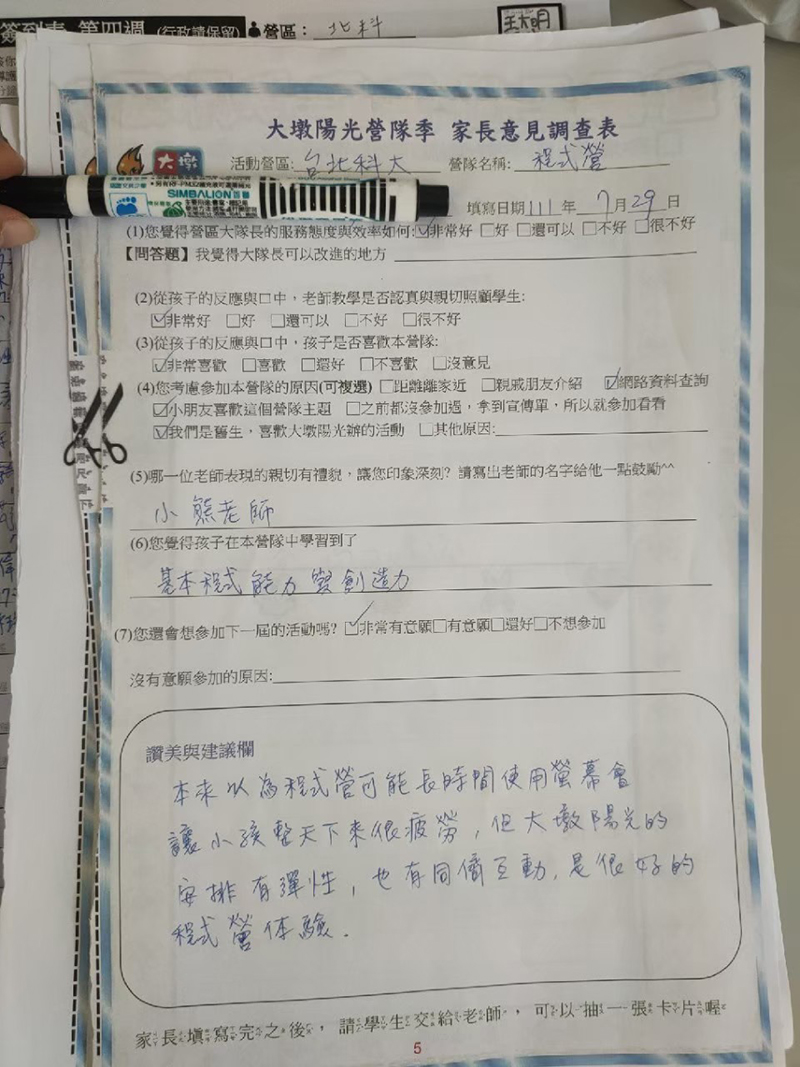 簽到表 第四週 (行政請保留) 營區： 北科
大墩陽光營隊季 家長意見調查表
大墩 活動營區: 台北科大 營隊名稱: 程式營
SIMBALION 雄獅
填寫日期 111 年 7 月 29 日
(1)您覺得營區大隊長的服務態度與效率如何: ☑非常好 □好 □還可以 □不好 □很不好
【問答題】我覺得大隊長可以改進的地方
(2)從孩子的反應與口中，老師教學是否認真與親切照顧學生:
☑非常好 □好 □還可以 □不好 □很不好
(3)從孩子的反應與口中，孩子是否喜歡本營隊:
☑非常喜歡 □喜歡 □還好 □不喜歡 □沒意見
(4)您考慮參加本營隊的原因(可複選) □距離離家近 □親戚朋友介紹 ☑網路資料查詢
☑小朋友喜歡這個營隊主題 □之前都沒參加過，拿到宣傳單，所以就參加看看
☑我們是舊生，喜歡大墩陽光辦的活動 □其他原因:
(5)哪一位老師表現的親切有禮貌，讓您印象深刻? 請寫出老師的名字給他一點鼓勵^^
小熊老師
(6)您覺得孩子在本營隊中學習到了
基本程式能力與創造力
(7)您還會想參加下一屆的活動嗎? ☑非常有意願□有意願□還好□不想參加
沒有意願參加的原因:
讚美與建議欄
本來以為程式營可能長時間使用螢幕會
讓小孩整天下來很疲勞，但大墩陽光的
安排有彈性，也有同儕互動，是很好的
程式營体驗.
家長填寫完之後，請學生交給老師，可以抽一張卡片喔
5